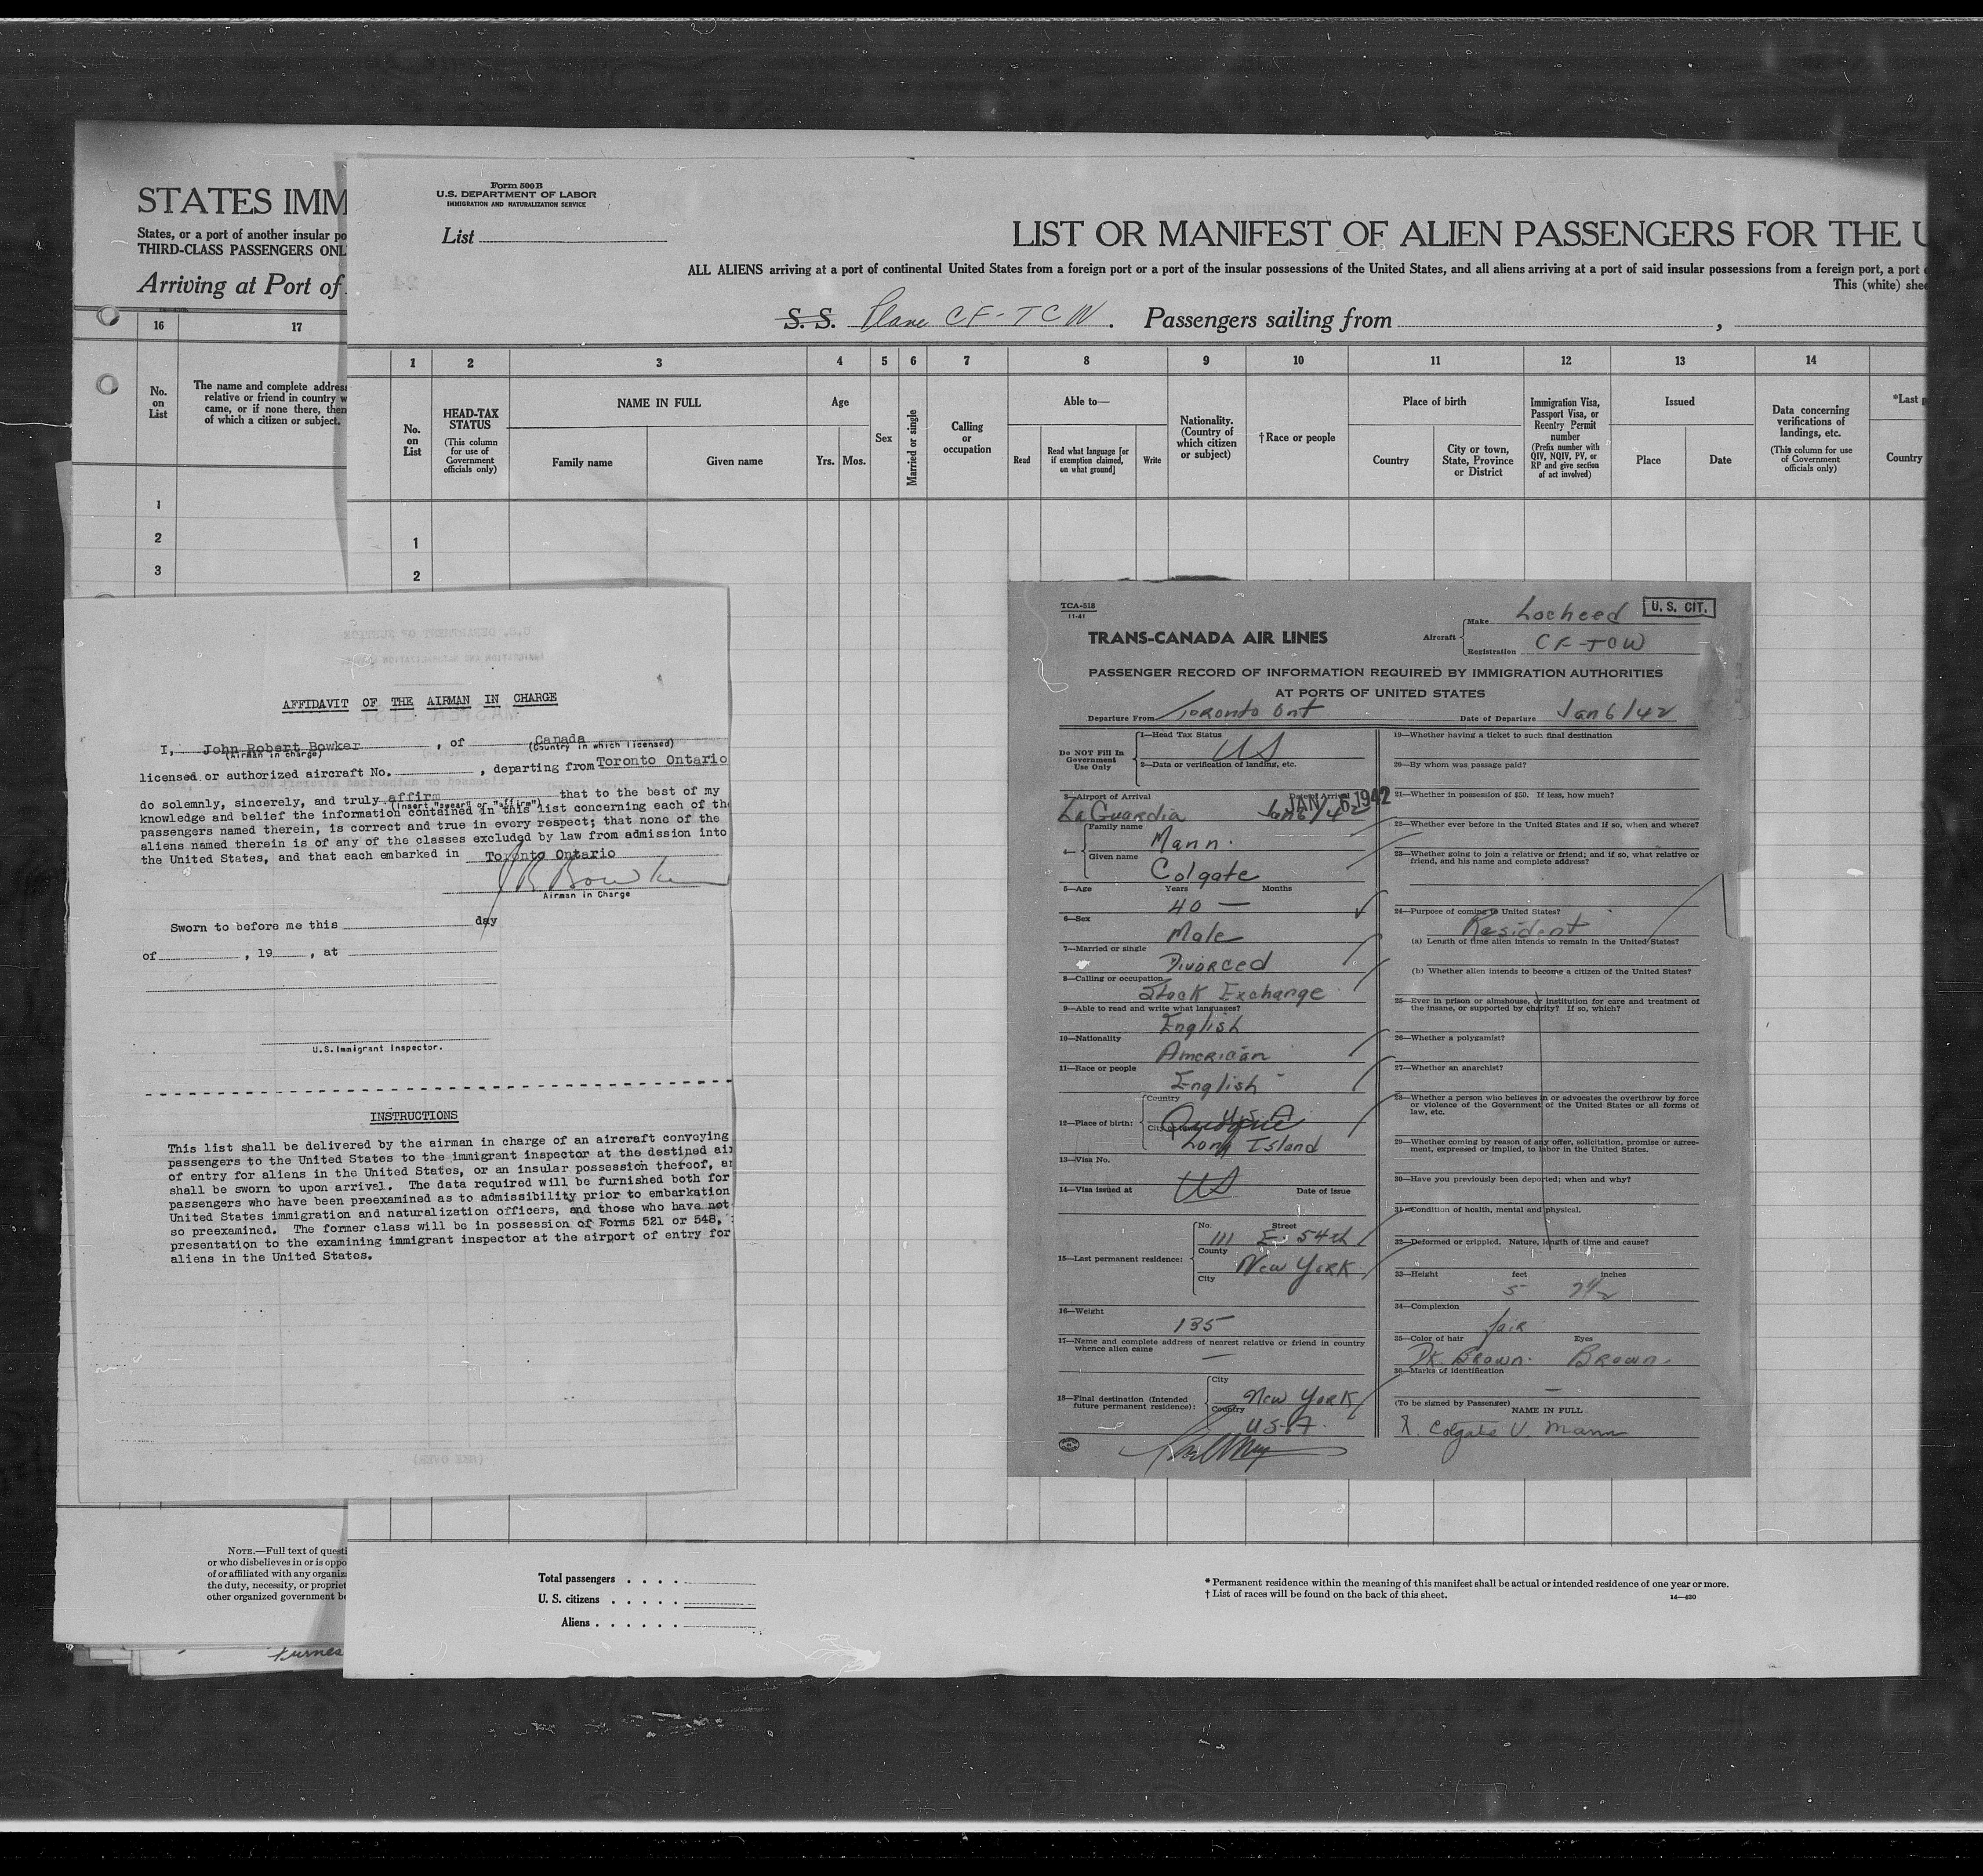 STATES IMM
States, or a port of another insular po
THIRD-CLASS PASSENGERS ONL
Arriving at Port of
16
17
No.
on
List
The name and complete address
relative or friend in country w
came, or if none there, then
of which a citizen or subject.
1
2
3
Form 500 B
U.S. DEPARTMENT OF LABOR
IMMIGRATION AND NATURALIZATION SERVICE
List
LIST OR MANIFEST OF ALIEN PASSENGERS FOR THE U
ALL ALIENS arriving at a port of continental United States from a foreign port or a port of the insular possessions of the United States, and all aliens arriving at a port of said insular possessions from a foreign port, a port o
This (white) shee
S. S. Plane CF-TCW. Passengers sailing from ,
1 2 3 4 5 6 7 8 9 10 11 12 13 14
No.
on
List
HEAD-TAX
STATUS
(This column
for use of
Government
officials only)
NAME IN FULL
Family name
Given name
Age
Yrs. Mos.
Sex
Married or single
Calling
or
occupation
Able to—
Read
Read what language [or
if exemption claimed,
on what ground]
Write
Nationality.
(Country of
which citizen
or subject)
† Race or people
Place of birth
Country
City or town,
State, Province
or District
Immigration Visa,
Passport Visa, or
Reentry Permit
number
(Prefix number with
QIV, NQIV, PV, or
RP and give section
of act involved)
Issued
Place
Date
Data concerning
verifications of
landings, etc.
(This column for use
of Government
officials only)
*Last p
Country
1
2
AFFIDAVIT OF THE AIRMAN IN CHARGE
I, John Robert Bowker , of Canada
(Airman in charge) (Country in which licensed)
licensed or authorized aircraft No. , departing from Toronto Ontario
do solemnly, sincerely, and truly affirm that to the best of my
(Insert "swear" or "affirm")
knowledge and belief the information contained in this list concerning each of the
passengers named therein, is correct and true in every respect; that none of the
aliens named therein is of any of the classes excluded by law from admission into
the United States, and that each embarked in Toronto Ontario
J R Bowker
Airman in Charge
Sworn to before me this day
of , 19 , at
U.S.Immigrant Inspector.
INSTRUCTIONS
This list shall be delivered by the airman in charge of an aircraft conveying
passengers to the United States to the immigrant inspector at the destined air
of entry for aliens in the United States, or an insular possession thereof, an
shall be sworn to upon arrival. The data required will be furnished both for
passengers who have been preexamined as to admissibility prior to embarkation
United States immigration and naturalization officers, and those who have not
so preexamined. The former class will be in possession of Forms 521 or 548,
presentation to the examining immigrant inspector at the airport of entry for
aliens in the United States.
TCA-318
11-41
TRANS-CANADA AIR LINES
Aircraft
Make Locheed
Registration CF-TCW
U. S. CIT.
PASSENGER RECORD OF INFORMATION REQUIRED BY IMMIGRATION AUTHORITIES
AT PORTS OF UNITED STATES
Departure From Toronto Ont Date of Departure Jan 6/42
Do NOT Fill In
Government
Use Only
1—Head Tax Status
US
2—Data or verification of landing, etc.
3—Airport of Arrival Date of Arrival
La Guardia Jan 6/42
JAN 6 1942
4—
Family name
Mann.
Given name
Colgate
5—Age Years Months
40 —
6—Sex
Male
7—Married or single
Divorced
8—Calling or occupation
Stock Exchange
9—Able to read and write what languages?
English
10—Nationality
American
11—Race or people
English
12—Place of birth:
Country
U.S.A
City or town
Long Island
13—Visa No.
14—Visa issued at US Date of issue
15—Last permanent residence:
No. Street
111 E. 54th
County
New York
City
16—Weight
135
17—Name and complete address of nearest relative or friend in country
whence alien came
—
18—Final destination (Intended
future permanent residence):
City
New York
Country
U.S.A.
19—Whether having a ticket to such final destination
20—By whom was passage paid?
21—Whether in possession of $50. If less, how much?
22—Whether ever before in the United States and if so, when and where?
23—Whether going to join a relative or friend; and if so, what relative or
friend, and his name and complete address?
24—Purpose of coming to United States?
Resident
(a) Length of time alien intends to remain in the United States?
(b) Whether alien intends to become a citizen of the United States?
25—Ever in prison or almshouse, or institution for care and treatment of
the insane, or supported by charity? If so, which?
26—Whether a polygamist?
27—Whether an anarchist?
28—Whether a person who believes in or advocates the overthrow by force
or violence of the Government of the United States or all forms of
law, etc.
29—Whether coming by reason of any offer, solicitation, promise or agree-
ment, expressed or implied, to labor in the United States.
30—Have you previously been deported; when and why?
31—Condition of health, mental and physical.
32—Deformed or crippled. Nature, length of time and cause?
33—Height feet inches
5 7½
34—Complexion
fair
35—Color of hair Eyes
Dk. Brown. Brown.
36—Marks of identification
—
(To be signed by Passenger)
NAME IN FULL
X. Colgate V. Mann
NOTE.—Full text of questi
or who disbelieves in or is oppo
of or affiliated with any organiza
the duty, necessity, or propriet
other organized government be
Furnes
Total passengers . . . .
U. S. citizens . . . . .
Aliens . . . . . .
* Permanent residence within the meaning of this manifest shall be actual or intended residence of one year or more.
† List of races will be found on the back of this sheet.
14—430